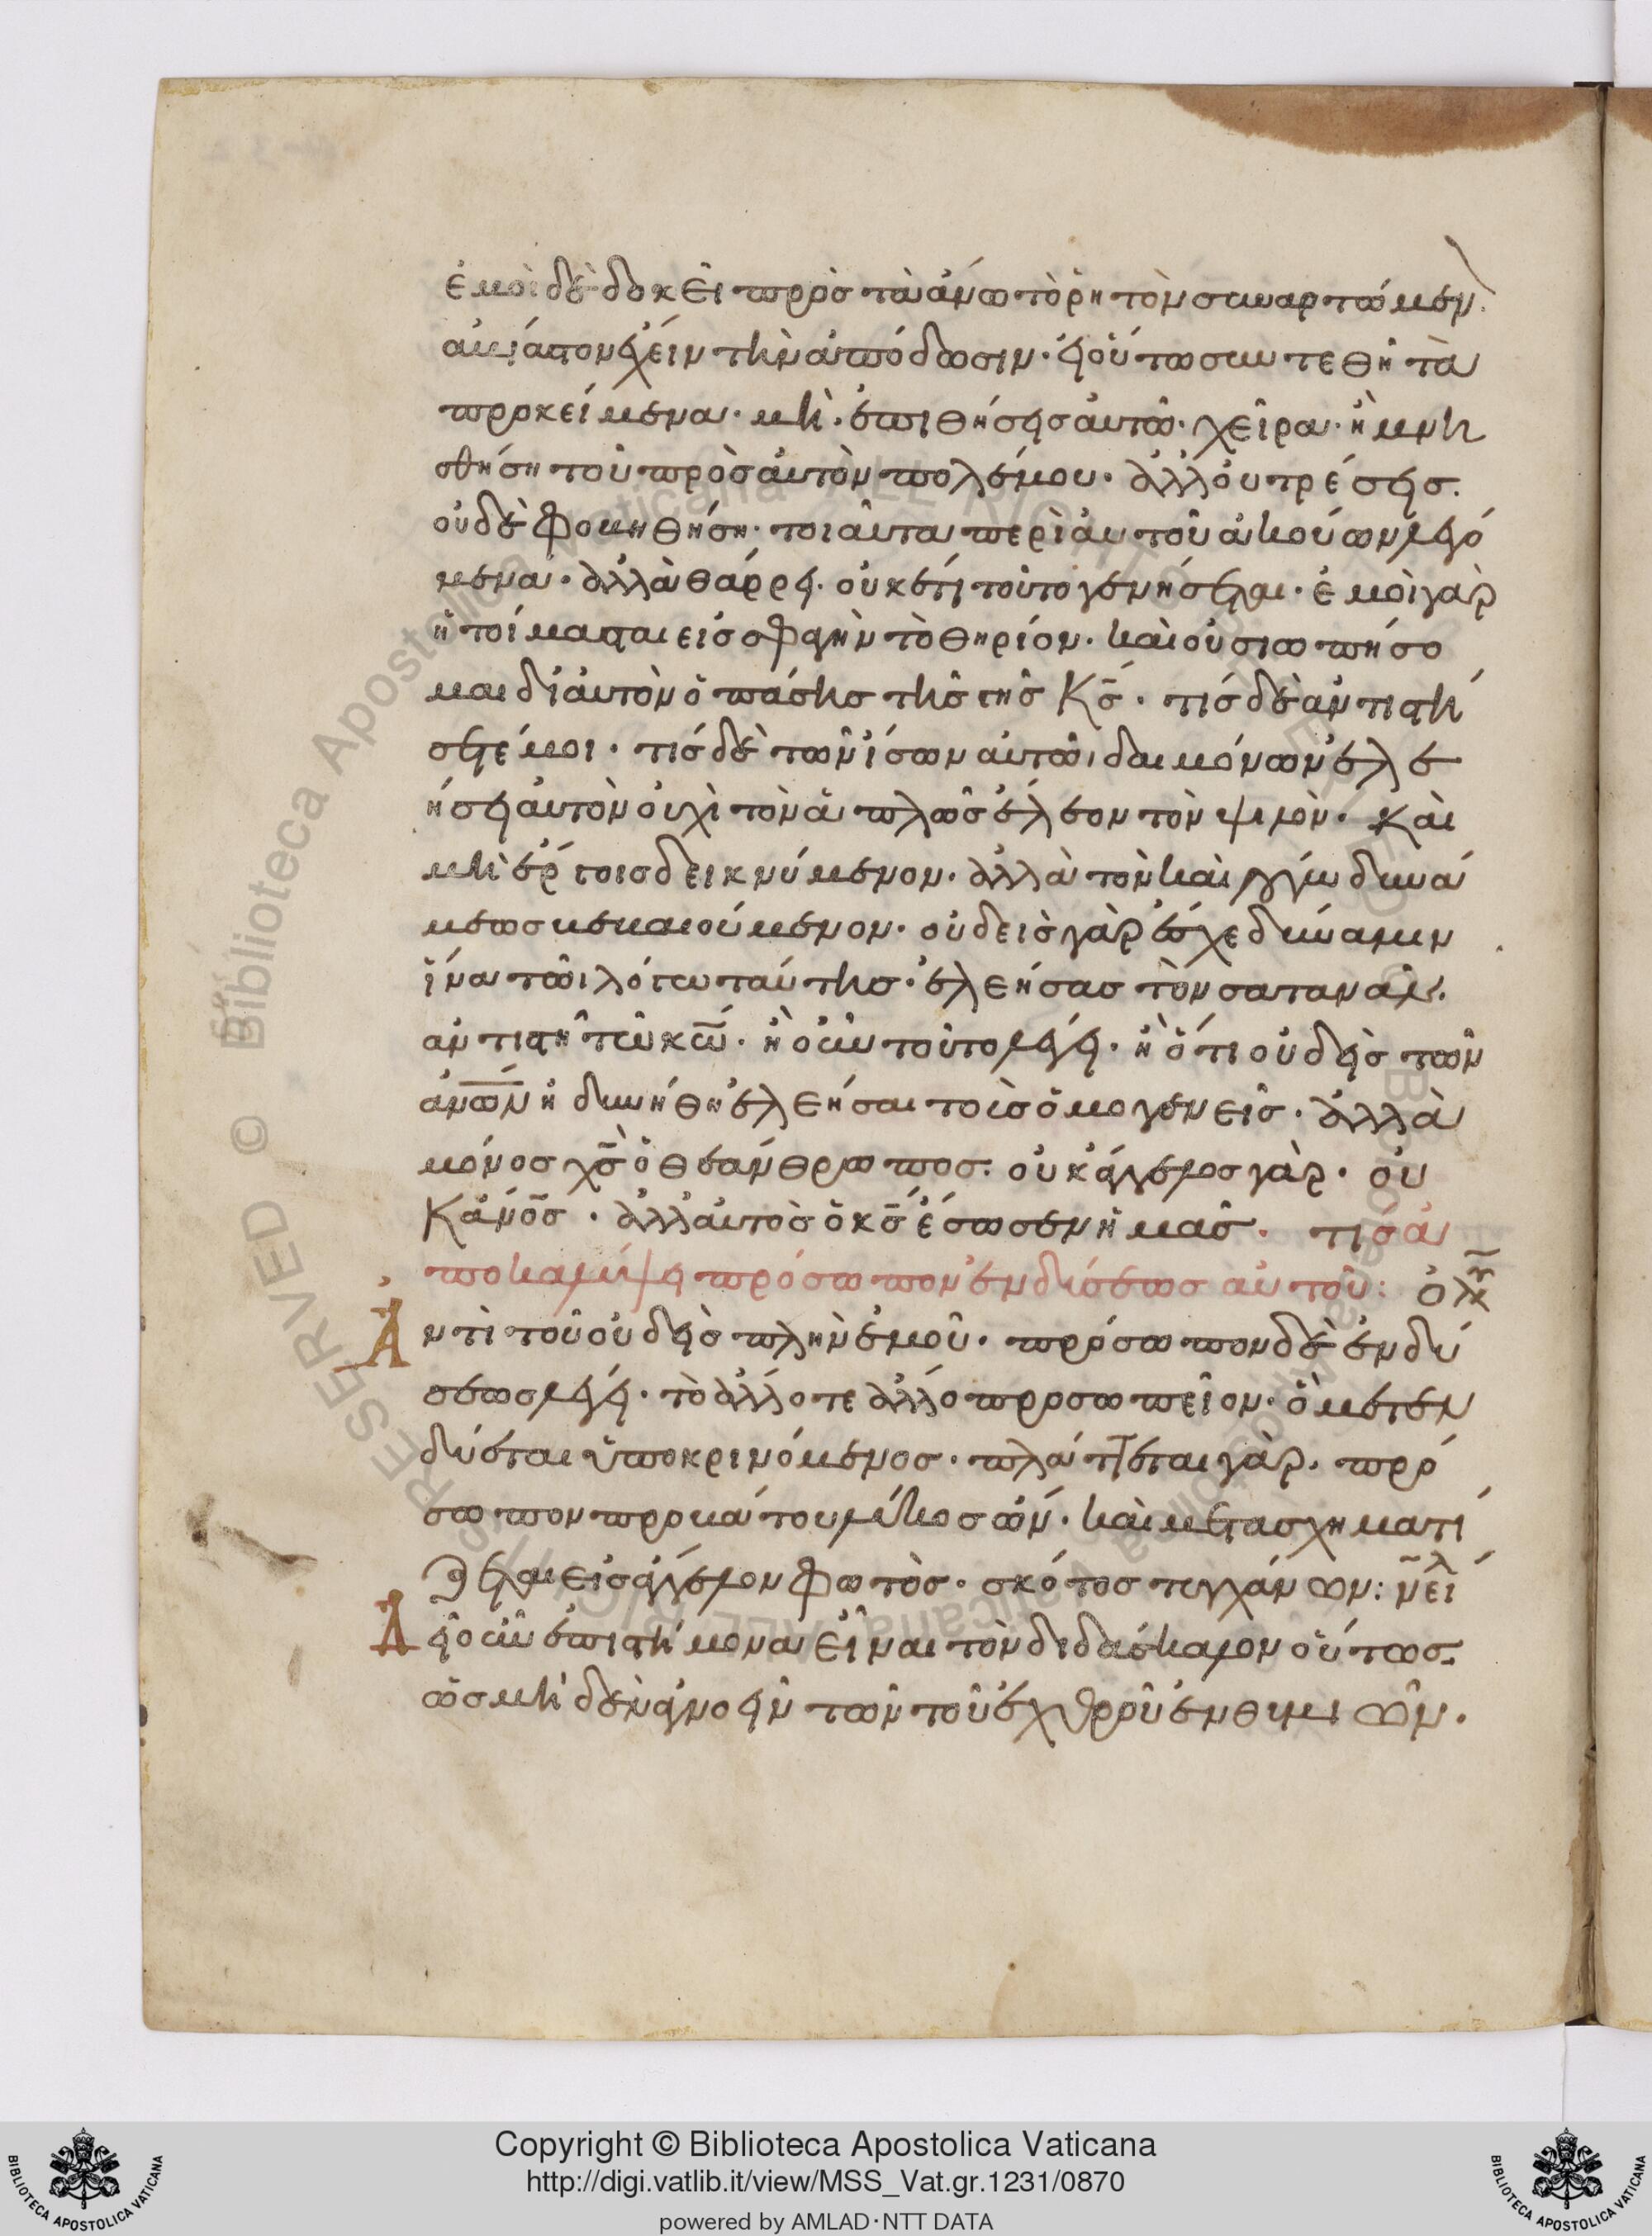 ἐμοὶ δὲ δοκεῖ πρὸς τὰ ἄνω τὸ ῥητὸν συναρτώμεν
ἀκίαστον ἔχειν τὴν ἀπόδοσιν· εἰ οὕτω συντεθῆ τὰ
προκείμενα· μὴ· ἐπιθήσεις αὐτῶ· χεῖρα· ἢ μνη
σθήση τοῦ πρὸς αὐτὸν πολέμου· ἀλλ' οὐ τρέσεις.
οὐδὲ φοβηθήση· τοιαῦτα περὶ αὐτοῦ ἀκούων λεγό
μενα· ἀλλὰ θάρρει· οὐκέτι τοῦτο γενήσεται· ἐμοὶ γὰρ
ἡτοίμασται εἰς σφαγὴν τὸ θηρίον· καὶ οὐ σιωπήσο
μαι δι' αὐτὸν ὁ πάσης τῆς γῆς κς̄· τίς δὲ ἀντιστή
σεται μοι· τίς δὲ τῶν ἴσων αὐτῶ δαιμόνων ἐλε
ήσει αὐτὸν οὐχὶ τὸν ἁπλῶς ἔλεον τὸν ψιλὸν· καὶ
μὴ ἔργοις δεικνύμενον· ἀλλὰ τὸν καὶ λόγω δυνά
μεως βεβαιούμενον· οὐδεὶς γὰρ ἔσχε δύναμιν
ἵνα τῶ λόγω ταύτης· ἐλεήσας τὸν σατανᾶν·
ἀντιστῆ τῶ κω̄· ἢ οὖν τοῦτο λέγει· ἢ ὅτι οὐδεὶς τῶν
ἀνω̄ν ἠδυνήθη ἐλεῆσαι τοῖς ὁμογενεῖς· ἀλλὰ
μόνος χς̄ ὁ θεάνθρωπος· οὐκ ἄγγελος γὰρ· οὐ
κ ἄνος̄· ἀλλ' αὐτὸς ὁ κς̄ ἔσωσεν ἡμᾶς· τίς ἀ
ποκαλύψει πρόσωπον ἐνδύσεως αὐτοῦ: ὀλυ
Ἀντὶ τοῦ οὐδεὶς πλὴν ἐμοῦ· πρόσωπον δὲ ἐνδύ
σεως λέγει· τὸ ἄλλοτε ἄλλο προσωπεῖον· ὃ μετεν
δύεται ὑποκρινόμενος· πλάττεται γὰρ· πρό
σωπον προβάτου λύκος ὤν· καὶ μετασχηματί
ζεται εἰς ἄγγελον φωτὸς· σκότος τυγχάνων: νειλ
Δεῖ οὖν ἐπιστήμονα εἶναι τὸν διδάσκαλον οὕτως·
ὡς μηδὲν ἀγνοεῖν τῶν τοῦ ἐχθροῦ ἐνθυμιῶν·
RESERVED © Biblioteca Apostolica Vaticana
Copyright © Biblioteca Apostolica Vaticana
http://digi.vatlib.it/view/MSS_Vat.gr.1231/0870
powered by AMLAD·NTT DATA
BIBLIOTECA APOSTOLICA VATICANA
BIBLIOTECA APOSTOLICA VATICANA